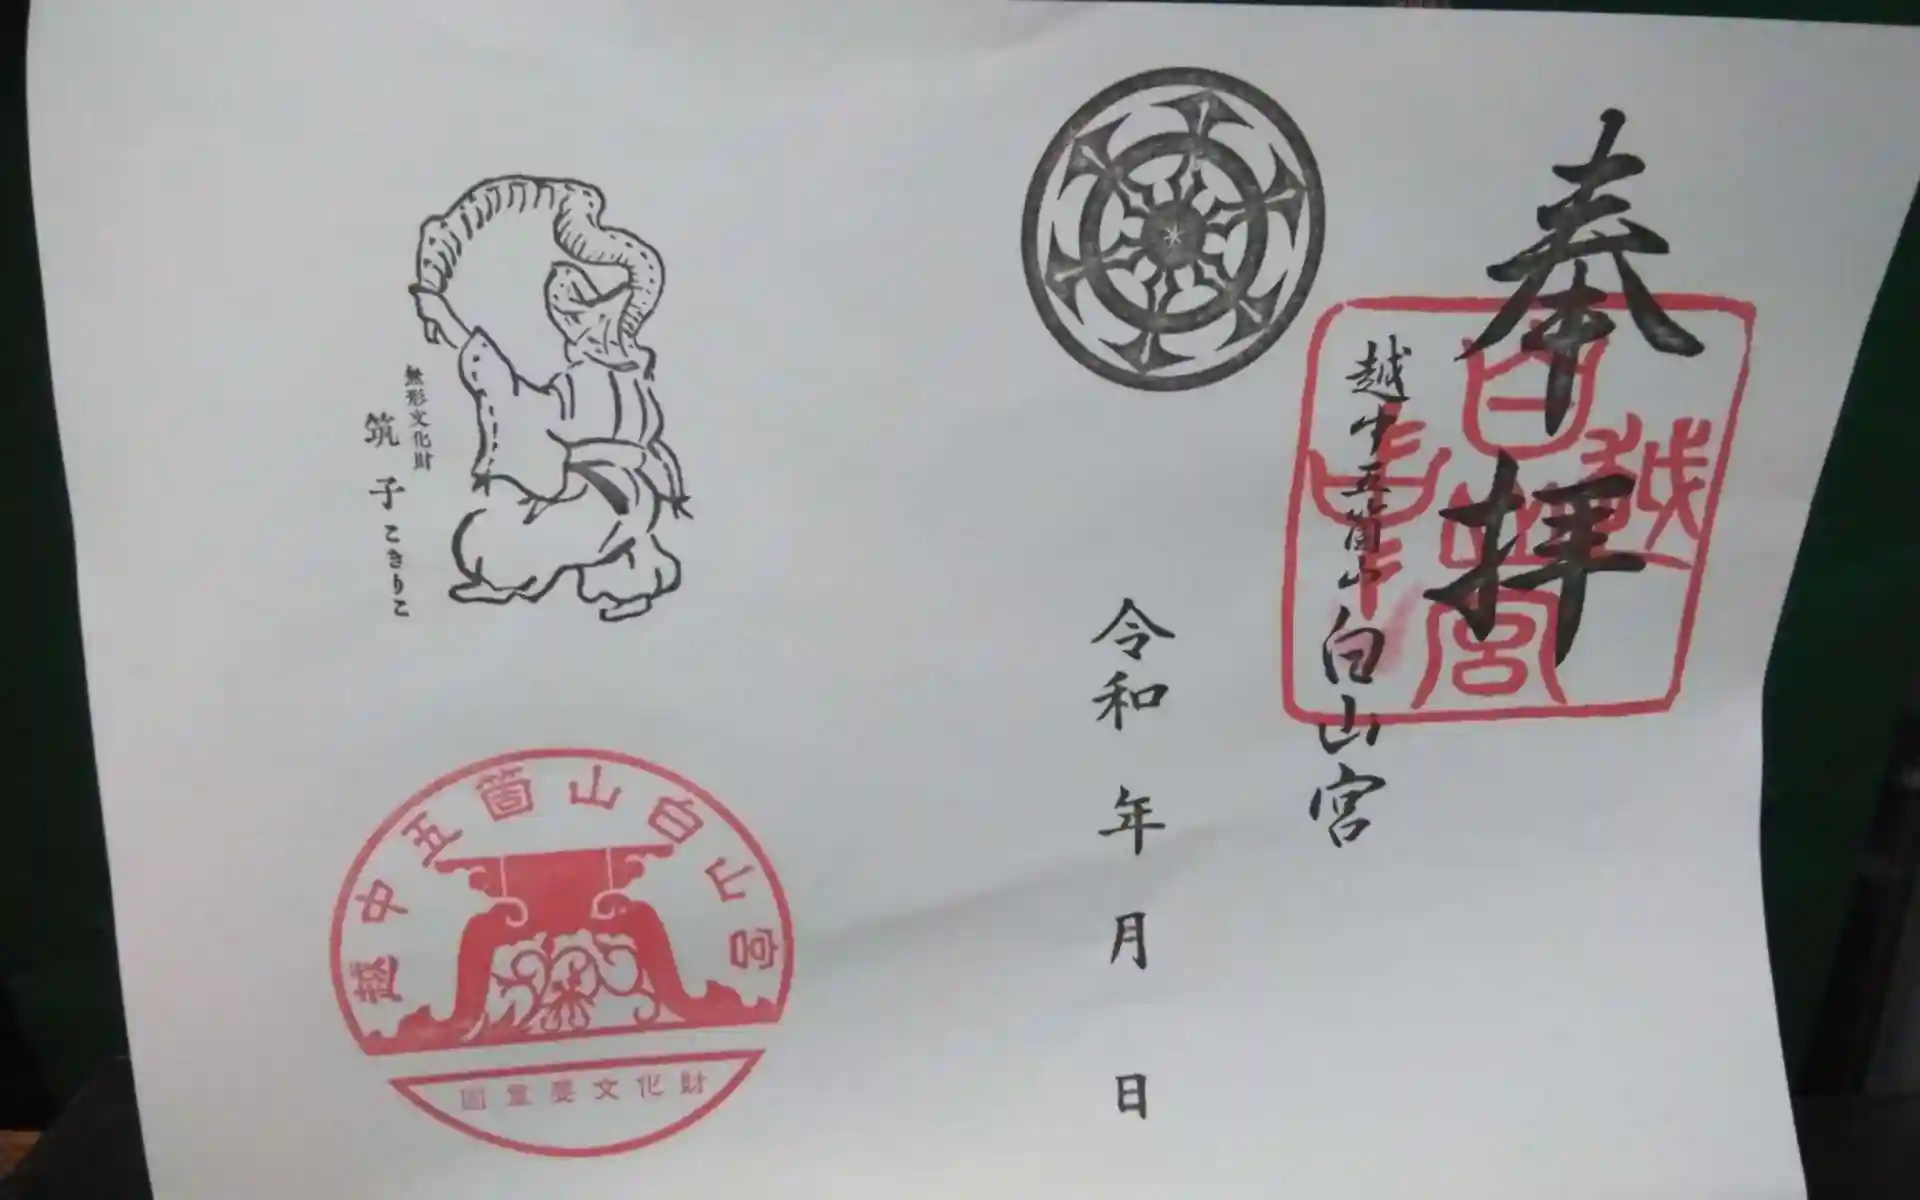 奉拝
越中五箇山白山宮
越中
白山宮
令和 年 月 日
無形文化財
筑子こきりこ
越中五箇山白山宮
国重要文化財